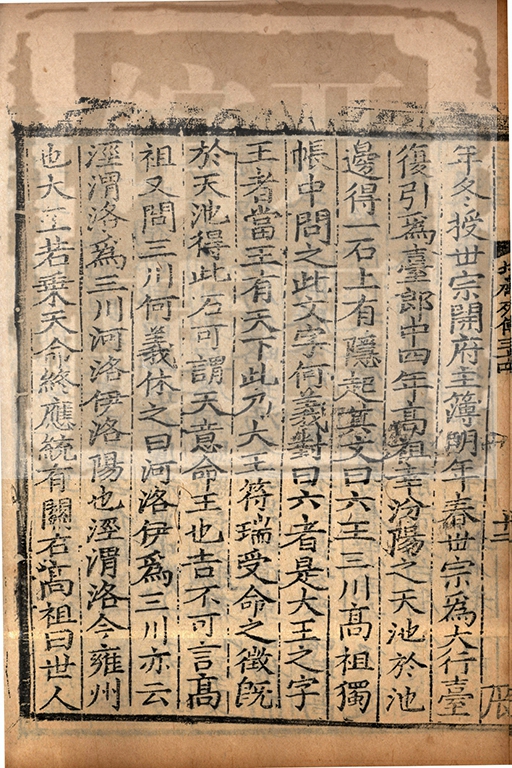 年冬授世宗開府主簿明年春世宗爲大行臺
復引爲臺郎中四年高祖幸汾陽之天池於池
邊得一石上有隱起其文曰六王三川高祖獨
帳中問之此文字何義對曰六者是大王之字
王者當王有天下此乃大王符瑞受命之徵旣
於天池得此石可謂天意命王也吉不可言高
祖又問三川何義休之曰河洛伊爲三川亦云
涇渭洛爲三川河洛伊洛陽也涇渭洛今雍州
也大王若乗天命終應統有關右高祖曰世人
十二